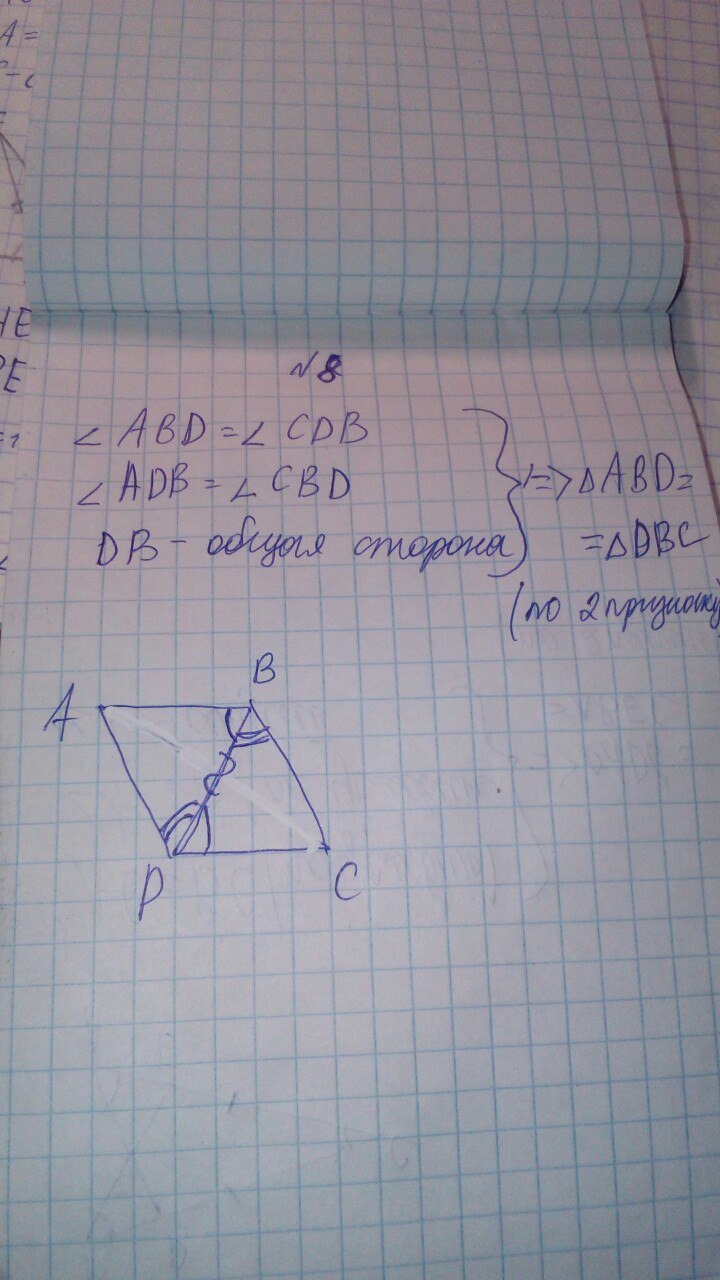 №8
∠ ABD = ∠ CDB
∠ ADB = ∠ CBD
DB - общая сторона
=> △ABD =
= △DBC
(по 2 признаку
A
B
D
C
A =
НЕ
РЕ